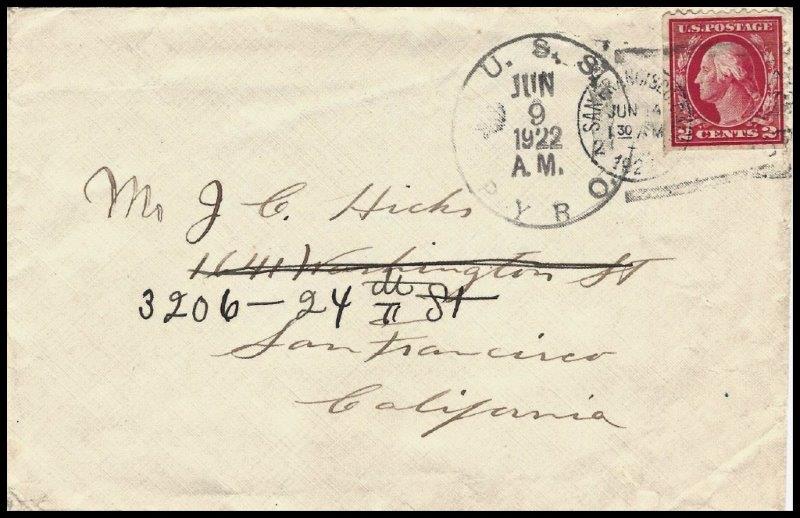 U.S. POSTAGE
2 CENTS 2
U. S. S.
JUN
9
1922
A. M.
PYRO.
SAN FRANCISCO
JUN 14
1 30 AM
192
Mr J C. Hicks
1641 Washington St
3206-24 th St
San Francisco
California